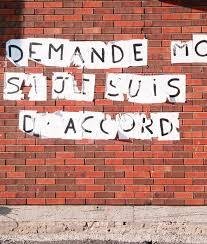 DEMANDE MO
SI JE SUIS
D'ACCORD